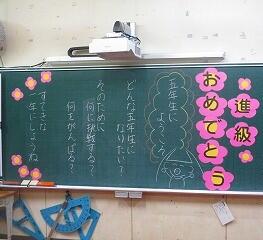 進級
おめでとう
五年生に
ようこそ
どんな五年生に
なりたい？
そのために
何に挑戦する？
何をがんばる？
すてきな
一年にしようね